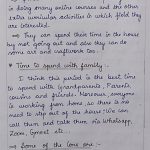 is doing many online courses and the other
extra curricular activities in which field they
are interested.
→ They can spend their time in the house
by not going out and also they can do
some art and craftwork too.
* Time to spend with family:
I think this period is the best time
to spend with Grandparents, Parents,
cousins and friends. Moreover everyone
is working from home so there is no
need to step out of the house. We can
call them and talk them via Whatsapp,
Zoom, Gmeet etc...
→ Some of the cons are: